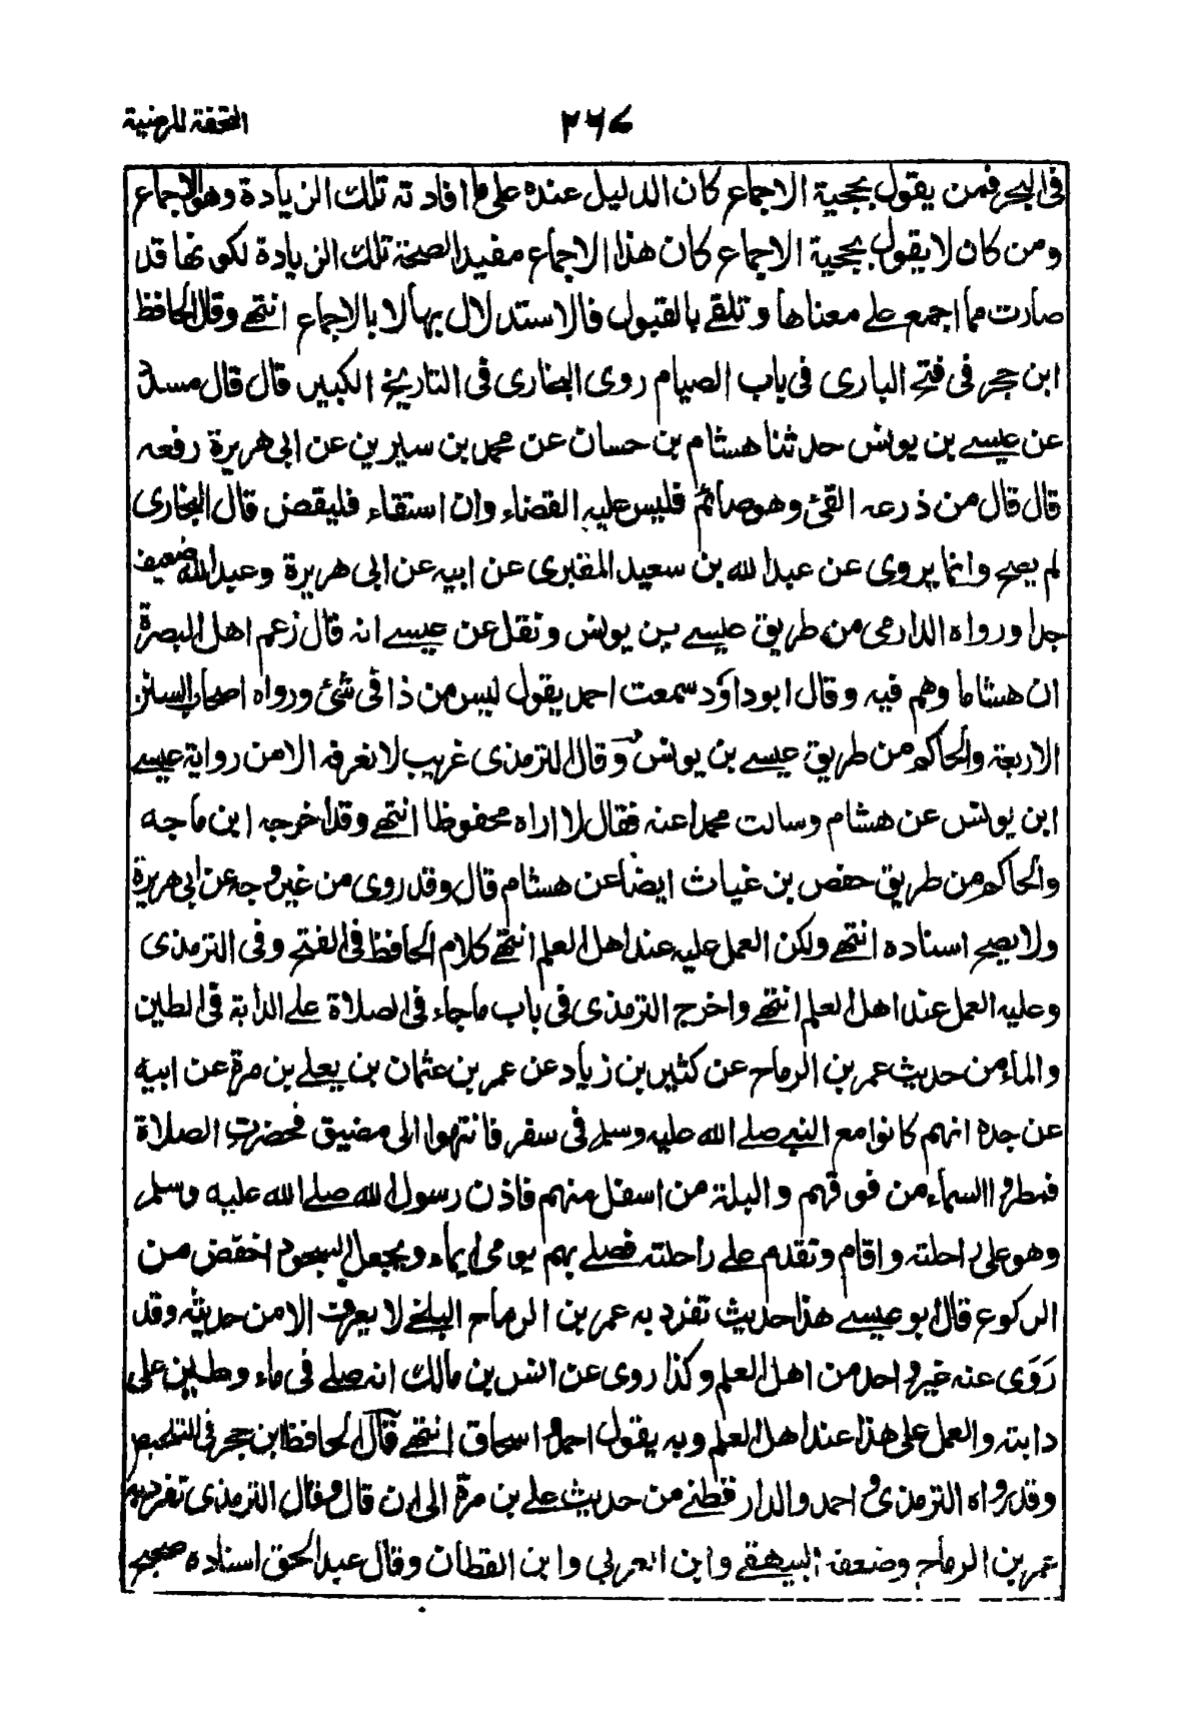 التحفة المرضية
٢٦٧
فی البحر فمن يقول بحجية الاجماع كان الدليل عنده على ما افادته تلك الزيادة وهو الاجماع
ومن كان لا يقول بحجية الاجماع كان هذا الاجماع مفيدا لصحة تلك الزيادة لكونها قد
صارت مما اجمع على معناها وتلقے بالقبول فالاستدلال بها لا بالاجماع انتهے وقال الحافظ
ابن حجر فی فتح الباری فی باب الصيام روى البخاری فی التاريخ الكبير قال قال مسدد
عن عيسے بن يونس حدثنا هشام بن حسان عن محمد بن سيرين عن ابی هريرة رفعه
قال قال من ذرعه القئ وهو صائم فليس عليه القضاء وان استقاء فليقض قال البخاری
لم يصح وانما يروى عن عبد الله بن سعيد المقبری عن ابيه عن ابی هريرة وعبد الله ضعيف
جدا ورواه الدارمی من طريق عيسے بن يونس ونقل عن عيسے انه قال زعم اهل البصرة
ان هشاما وهم فيه وقال ابو داؤد سمعت احمد يقول ليس من ذا فی شئ ورواه اصحاب السنن
الاربعة والحاكم من طريق عيسے بن يونس وقال الترمذی غريب لا نعرفه الا من رواية عيسے
ابن يونس عن هشام وسالت محمدا عنه فقال لا اراه محفوظا انتهے وقد اخرجه ابن ماجه
والحاكم من طريق حفص بن غياث ايضا عن هشام قال وقد روى من غير وجه عن ابی هريرة
ولا يصح اسناده انتهے ولكن العمل عليه عند اهل العلم انتهے كلام الحافظ فی الفتح وفی الترمذی
وعليه العمل عند اهل العلم انتهے واخرج الترمذی فی باب ماجاء فی الصلاة علے الدابة فی الطين
والماء من حديث عمر بن الرماح عن كثير بن زياد عن عمر بن عثمان بن يعلے بن مرة عن ابيه
عن جده انهم كانوا مع النبے صلے الله عليه وسلم فی سفر فانتهوا الى مضيق فحضرت الصلاة
فمطروا السماء من فوقهم والبلة من اسفل منهم فاذن رسول الله صلے الله عليه وسلم
وهو على راحلته واقام وتقدم علے راحلته فصلے بهم يومی ايماء ويجعل السجود اخفض من
الركوع قال ابو عيسے هذا حديث تفرد به عمر بن الرماح البلخے لا يعرف الا من حديثه وقد
رَوَى عنه غير واحد من اهل العلم وكذا روى عن انس بن مالك انه صلے فی ماء وطين على
دابته والعمل على هذا عند اهل العلم وبه يقول احمد واسحاق انتهے قال الحافظ ابن حجر فی التلخيص
وقد رواه الترمذی واحمد والدارقطنے من حديث علے بن مرة الى ان قال وقال الترمذی تفرد به
عمر بن الرماح وضعفه البيهقے وابن العربی وابن القطان وقال عبد الحق اسناده صحيح